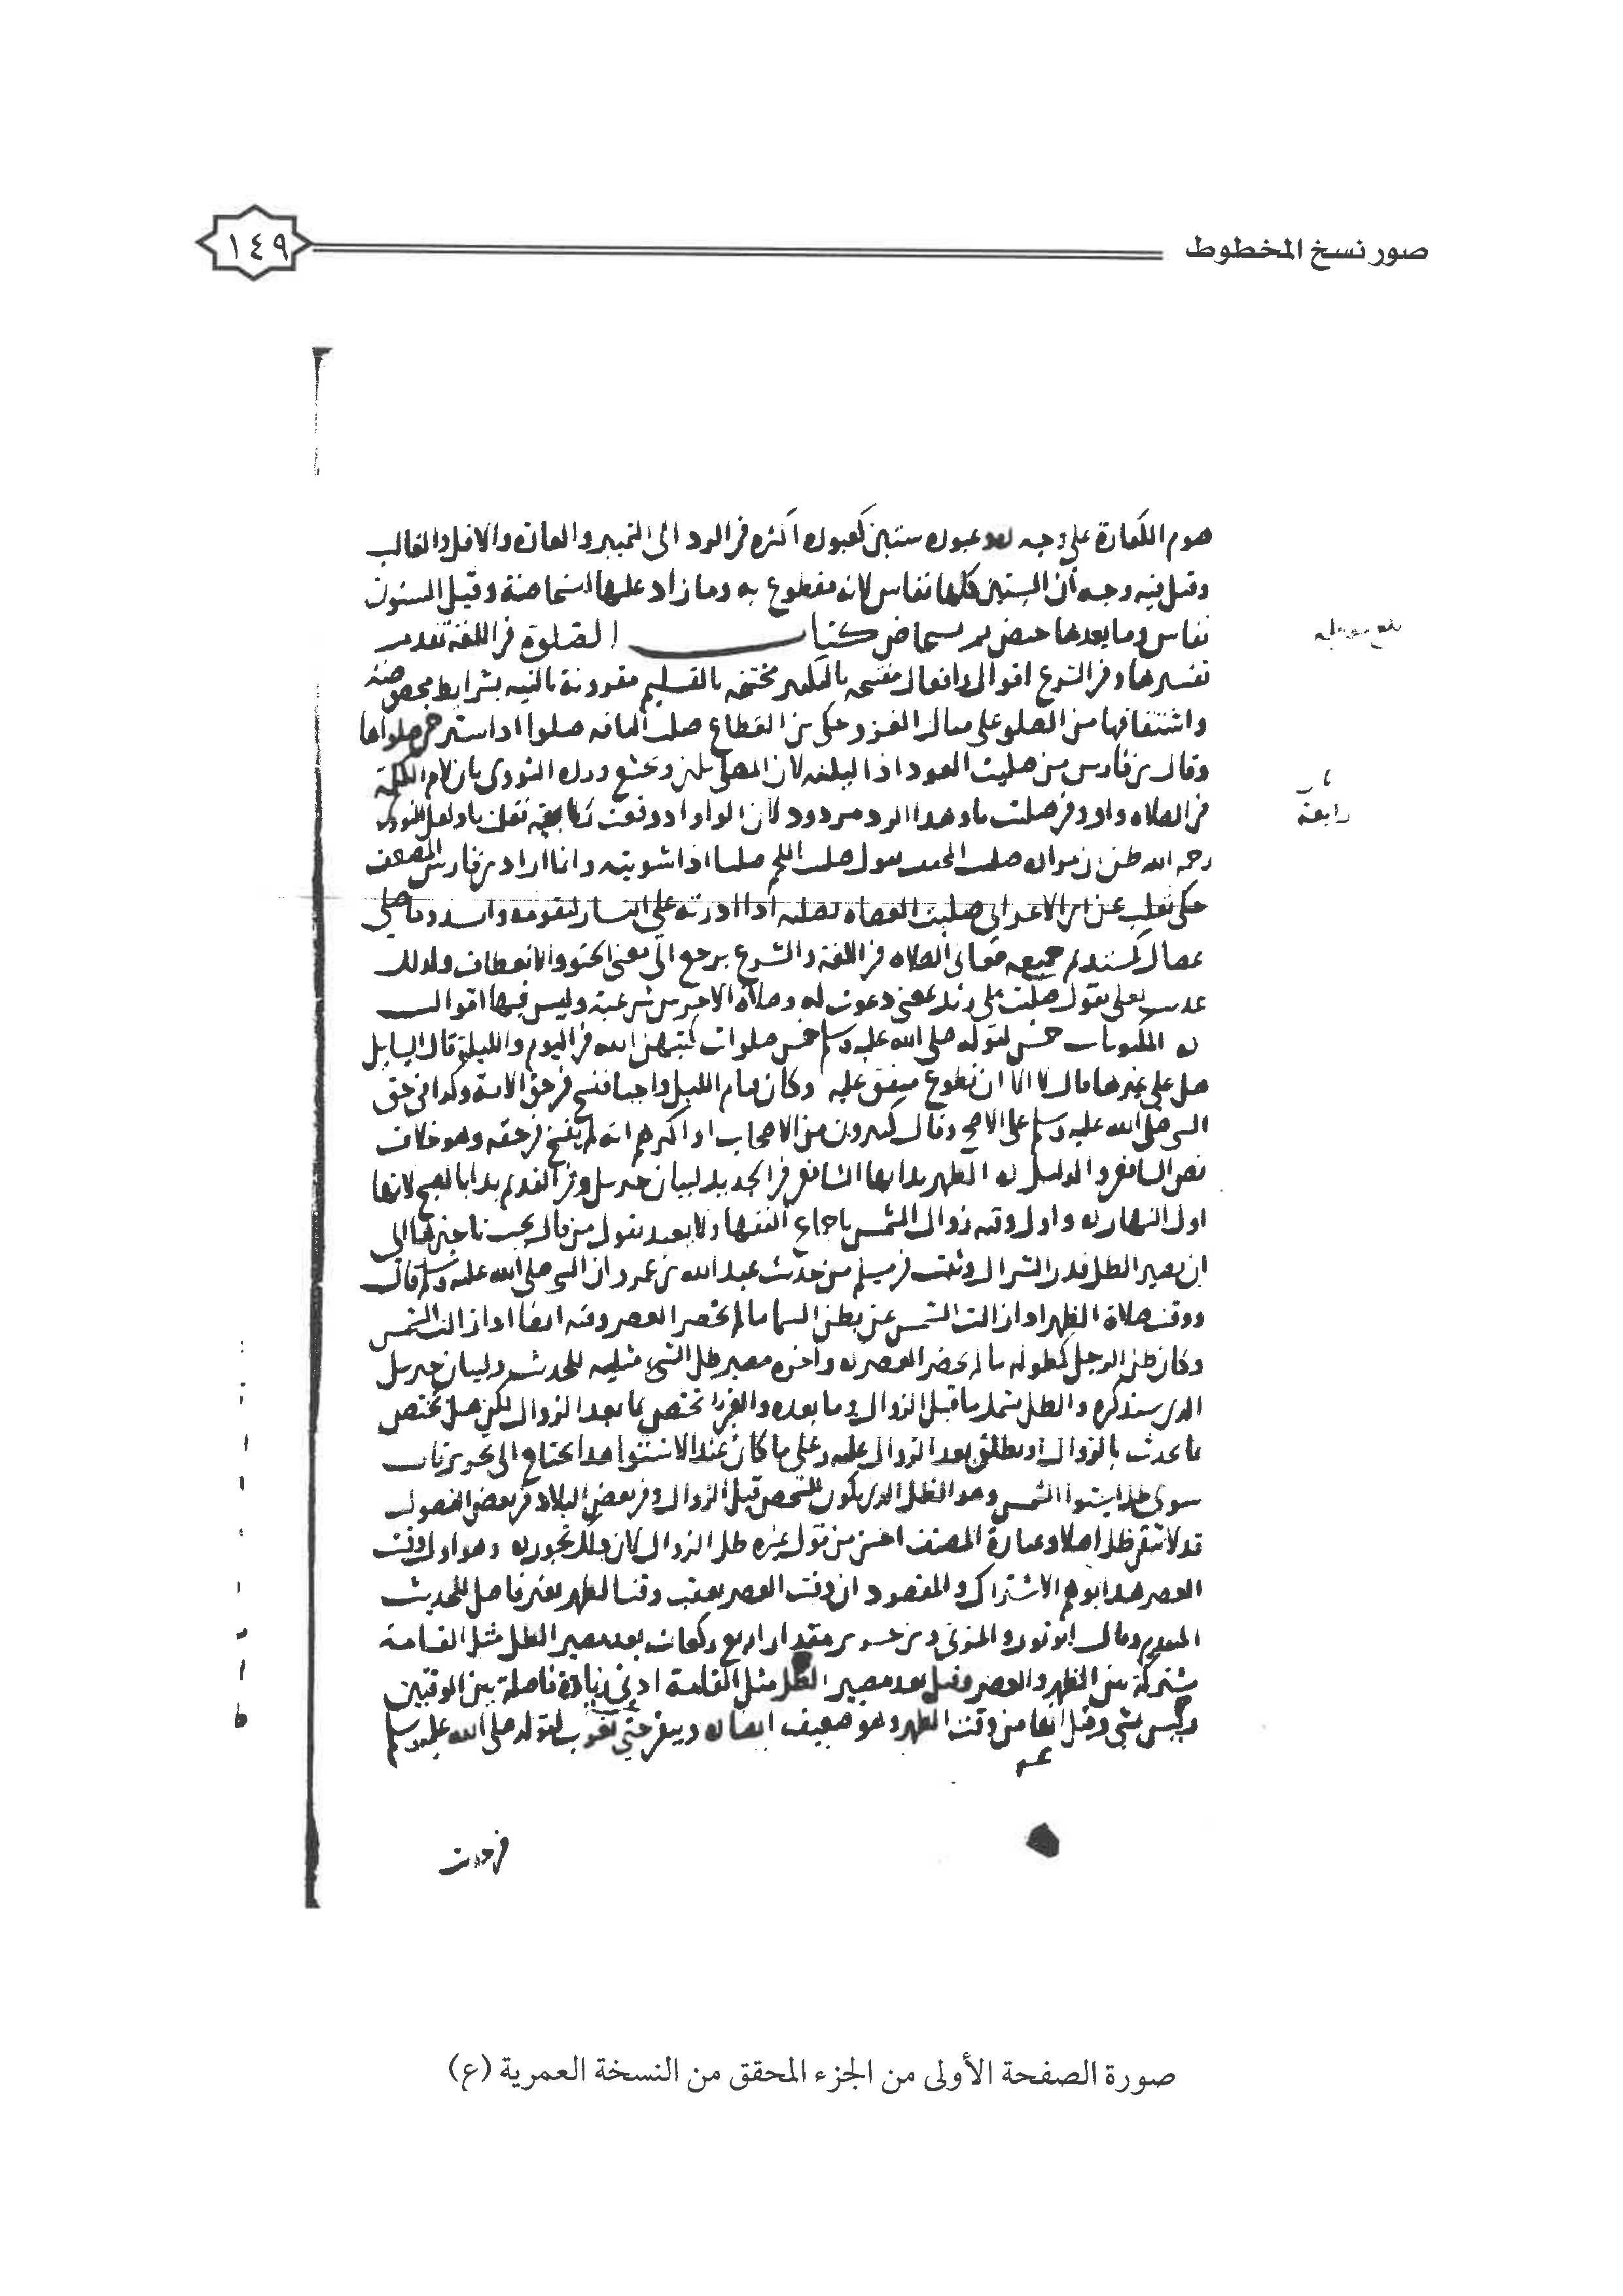 صور نسخ المخطوط
١٤٩
صوم الكفارة على وجه عبوره ستين كعبوره أكثره في الرد الى التمييز والعادة والاقل والغالب
وقيل فيه وجه أن الستين كلها نفاس لانه مقطوع به وما زاد عليها استحاضة وقيل الستون
نفاس وما بعدها حيض ثم كتاب الصلوة في اللغة تقدم
تفسيرها وفي الشرع اقوال وافعال مفتتحه بالتكبير مختتمه بالتسليم مقرونة بالنيه بشرايط مخصوصة
واشتقاقها من الصلو على
وقال بن فارس من صليت العود اذا لينته لان المصلي يلين ويخشع ورده النووي بان لام الكلمة
في الصلاه واو وفي صليت ياء وهذا الرد مردود لان الواو اذا وقعت رابعة تقلب ياء ولعل النووي
رحمه الله ظن ان مراده صليت اللحم صليا اذا شويته وانما اراد بن فارس المضعف
حكى ثعلب عن ابن الاعرابي صليت العصاه تصليه اذا ادرته على النار لتقومه وانشد وما صلى
عصاك كمستديم جميعه معاني الصلاه في اللغة والشرع يرجع الى معنى الحنو والانعطاف ولذلك
عدت بعلى تقول صليت على زيد بمعنى دعوت له وصلاة الاخرس شرعية وليس فيها اقوال
المكتوبات خمس لقوله صلى الله عليه وسلم خمس صلوات كتبهن الله في اليوم والليلة قال السايل
هل علي غيرها قال لا الا ان تطوع متفق عليه وكان قيام الليل واجبا فنسخ في حق الامة وكذا في حق
النبي صلى الله عليه وسلم على الاصح وقال كثيرون من الاصحاب او اكثرهم انه لم ينسخ في حقه وهو خلاف
نص الشافعي والدليل الظهر بدا بها الشافعي في الجديد لبيان جبريل وفي القديم بدا بالصبح لانها
اول النهار واول وقته زوال الشمس باجماع الفقها ولا يعتد بقول من قال يجب تاخيرها الى
ان يصير الظل قدر الشراك وثبت في مسلم من حديث عبد الله بن عمرو ان النبي صلى الله عليه وسلم قال
ووقت صلاة الظهر اذا زالت الشمس عن بطن السما ما لم تحضر العصر وفيه ايضا اذا زالت الشمس
وكان ظل الرجل كطوله ما لم يحضر العصر وآخره مصير ظل الشيء مثله للحديث ولبيان جبريل
الذي سنذكره والظل يشمل ما قبل الزوال وما بعده والفيء يختص بما بعد الزوال لكن هل يختص
بما يحدث بالزوال او يطلق بعد الزوال عليه وعلى ما كان عند الاستوا هذا يحتاج الى تحرير
سوى ظل استوا الشمس وهو الظل الذي يكون للشخص قبل الزوال وفي بعض البلاد في بعض الفصول
قد لا يبقى ظل اصلا وعبارة المصنف احسن من قول غيره ظل الزوال لان ذلك تجوز وهو اول وقت
العصر هذا يوهم الاشتراك والمقصود ان وقت العصر يعقب وقت الظهر بغير فاصل للحديث
المتقدم وقال ابو ثور والمزني وبن جرير مقدار اربع ركعات بعد مصير الظل مثل القامة
مشتركة بين الظهر والعصر وقيل بعد مصير الظل مثل القامة ادنى زيادة فاصلة بين الوقتين
وليس بشي وقيل انها من وقت الظهر وهو ضعيف ويبقى حتى تغرب لقوله صلى الله عليه وسلم
رابعة
صورة الصفحة الأولى من الجزء المحقق من النسخة العمرية (ع)